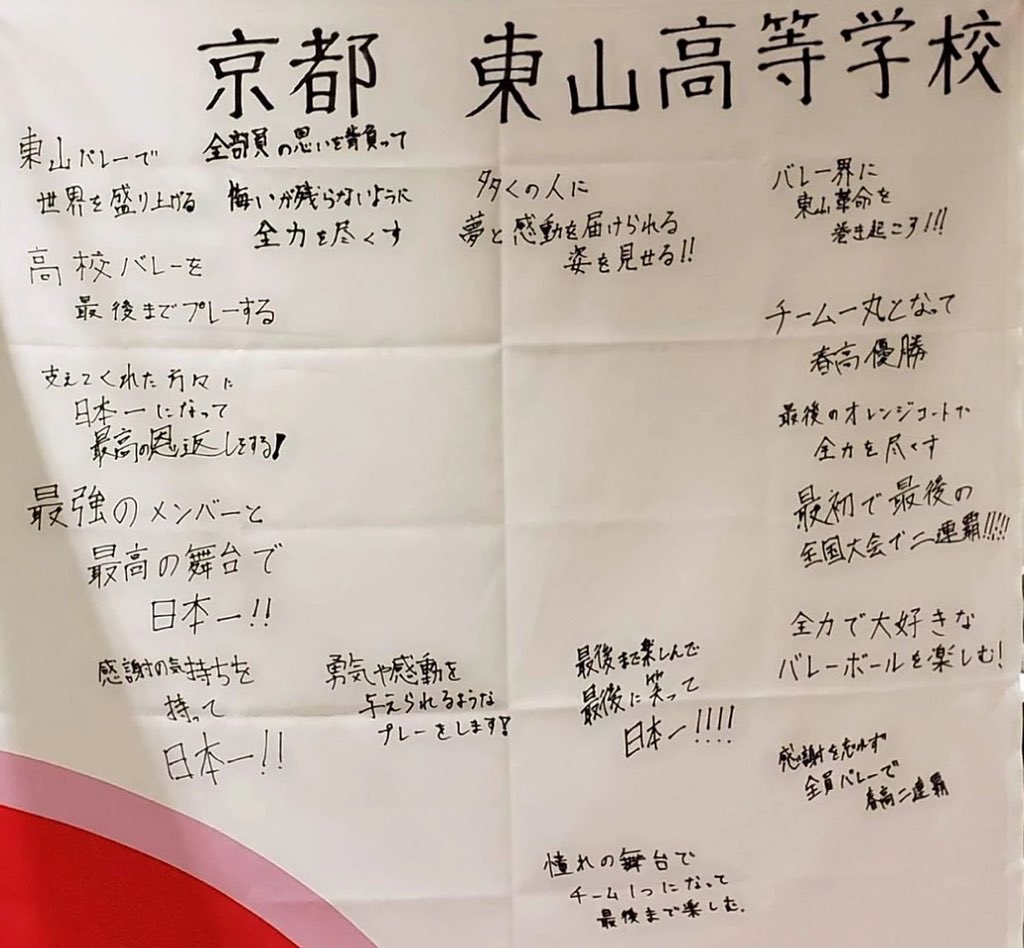 京都 東山高等学校
東山バレーで
世界を盛り上げる
全部員の思いを背負って
悔いが残らないように
全力を尽くす
多くの人に
夢と感動を届けられる
姿を見せる!!
バレー界に
東山革命を
巻き起こす!!!
高校バレーを
最後までプレーする
チーム一丸となって
春高優勝
支えてくれた方々に
日本一になって
最高の恩返しをする!
最後のオレンジコートで
全力を尽くす
最強のメンバーと
最高の舞台で
日本一!!
最初で最後の
全国大会で二連覇!!!!!
全力で大好きな
バレーボールを楽しむ!
感謝の気持ちを
持って
日本一!!
勇気や感動を
与えられるような
プレーをします!
最後まで楽しんで
最後に笑って
日本一!!!!
感謝を忘れず
全員バレーで
春高二連覇
憧れの舞台で
チーム1つになって
最後まで楽しむ.